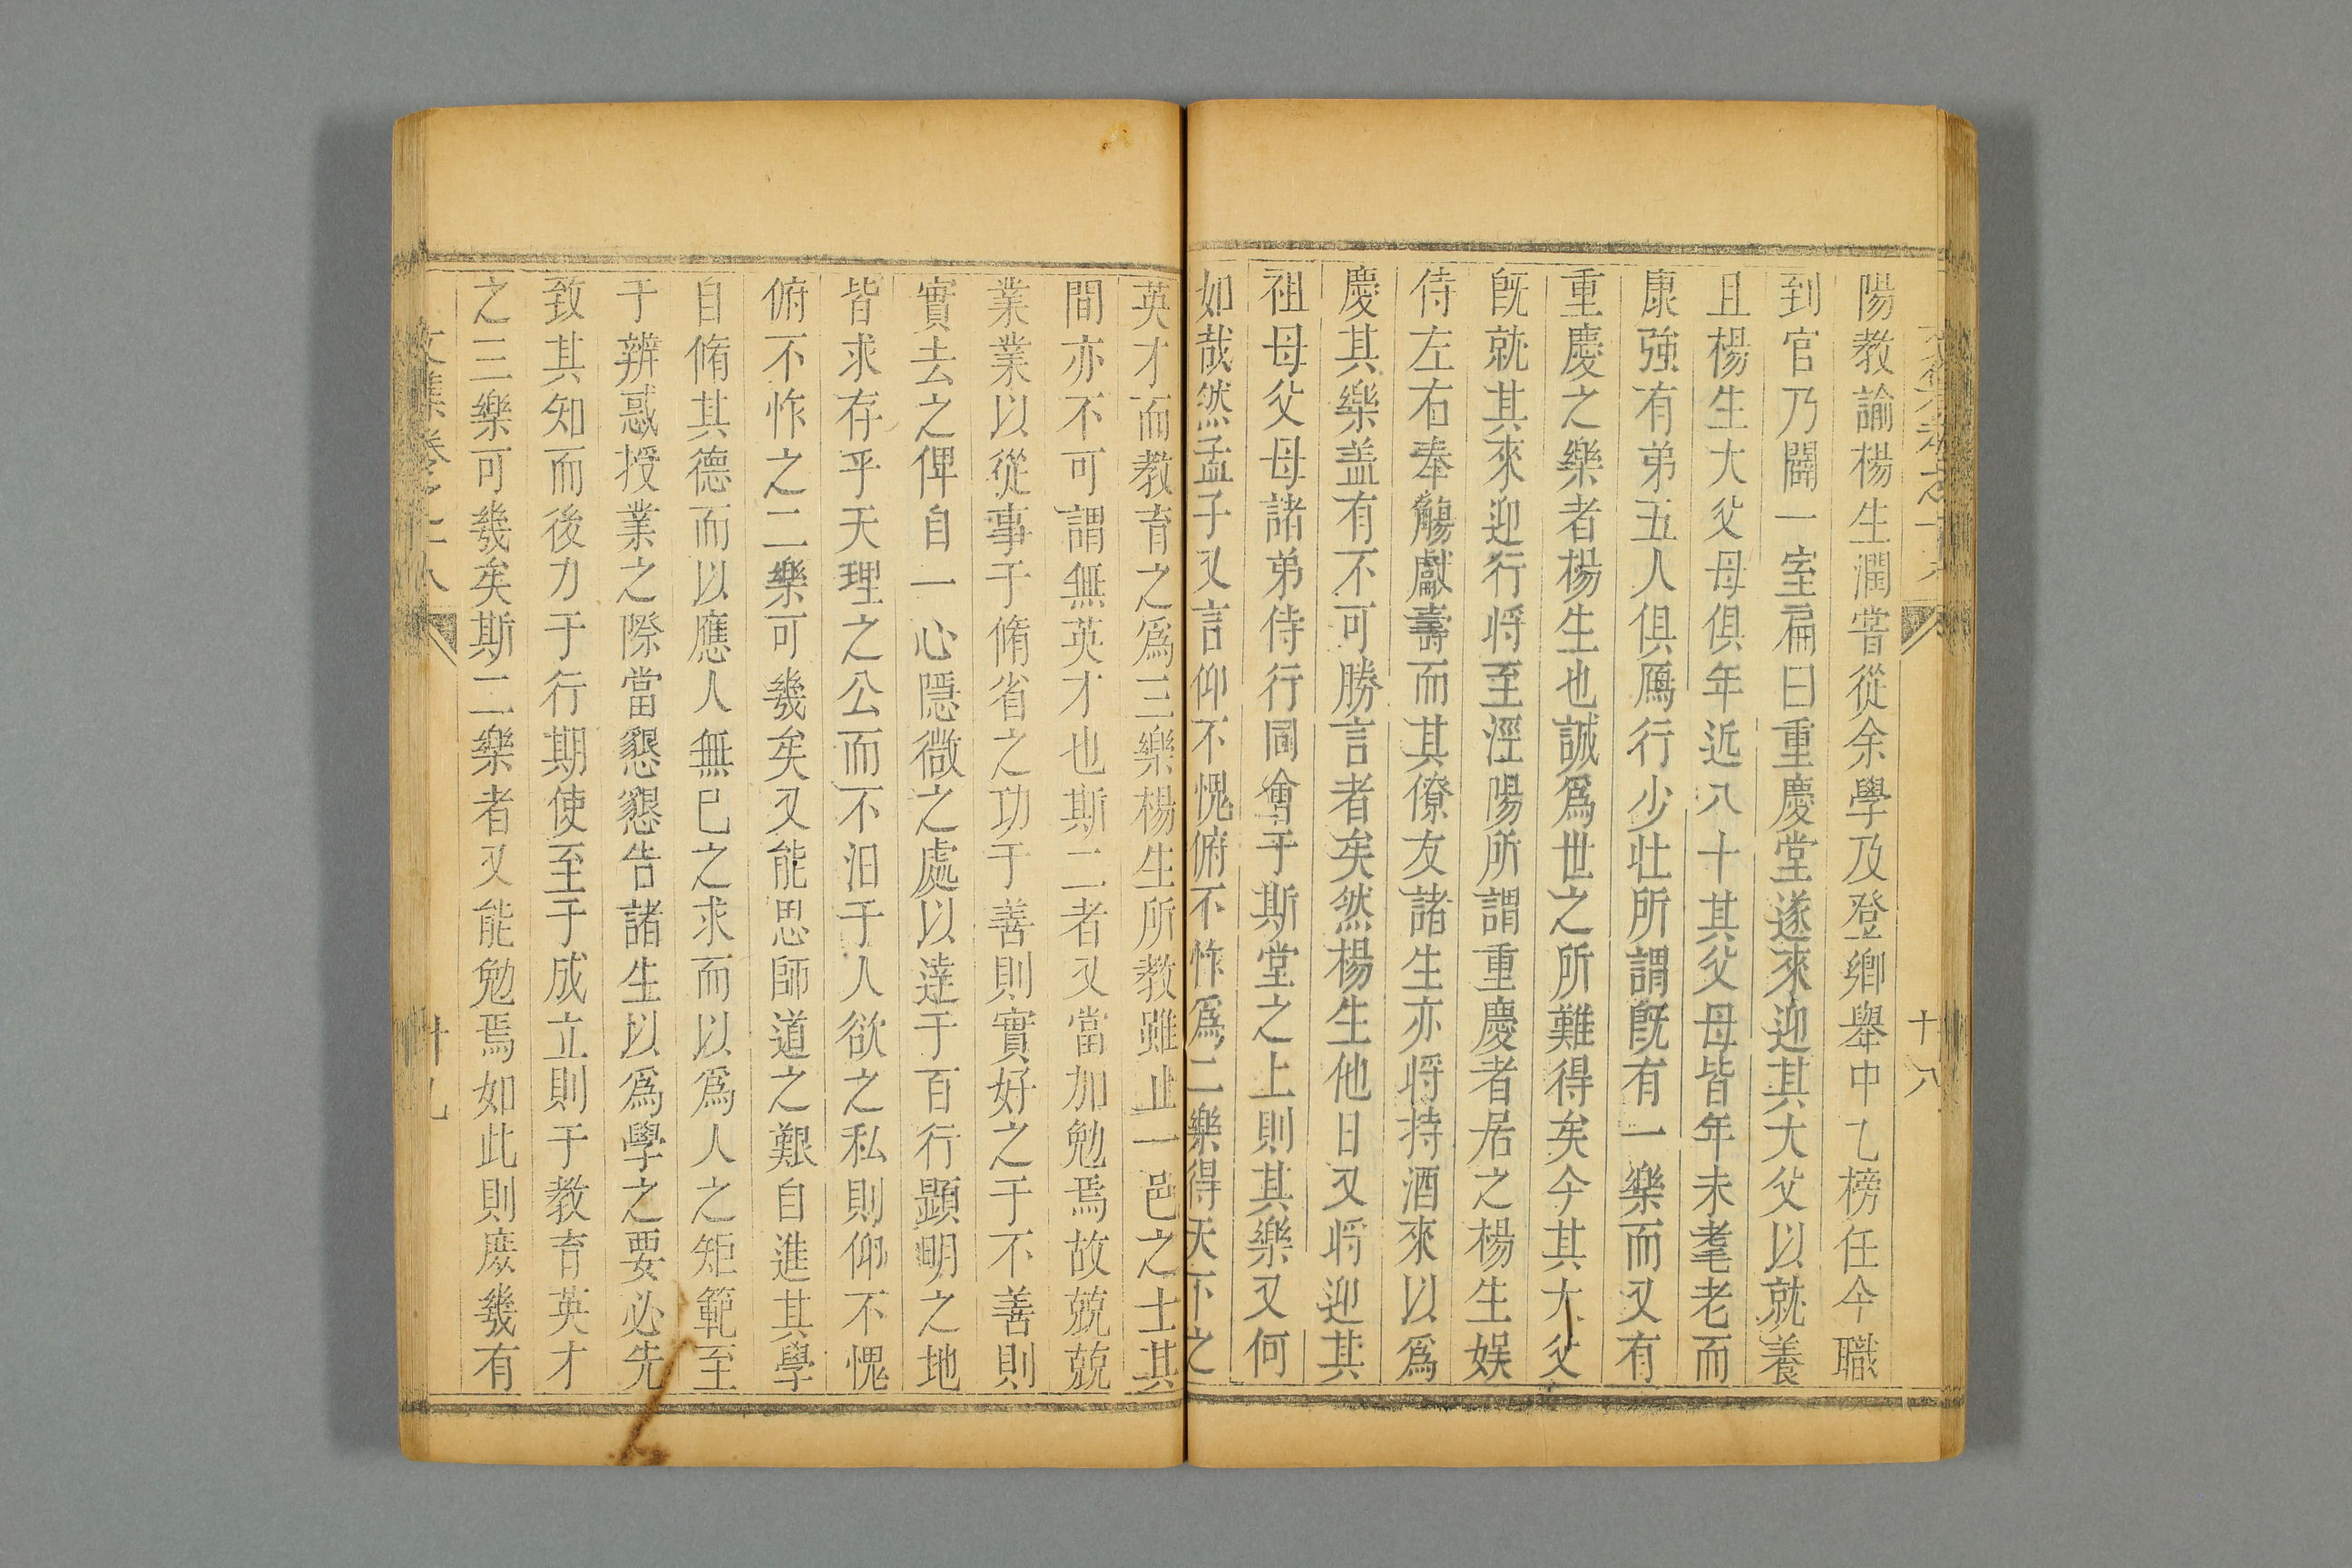 十八
陽教諭楊生潤嘗從余學及登鄉舉中乙榜任今職
到官乃闢一室扁曰重慶堂遂來迎其大父以就養
且楊生大父母俱年近八十其父母皆年未耄老而
康強有弟五人俱鴈行少壯所謂旣有一樂而又有
重慶之樂者楊生也誠爲世之所難得矣今其大父
旣就其來迎行将至涇陽所謂重慶者居之楊生娱
侍左右奉觴獻壽而其僚友諸生亦将持酒來以爲
慶其樂盖有不可勝言者矣然楊生他日又将迎其
祖母父母諸弟侍行同會于斯堂之上則其樂又何
如哉然孟子又言仰不愧俯不怍爲二樂得天下之
英才而教育之爲三樂楊生所教雖止一邑之士其
間亦不可謂無英才也斯二者又當加勉焉故兢兢
業業以從事于脩省之功于善則實好之于不善則
實去之俾自一心隱微之處以達于百行顯明之地
皆求存乎天理之公而不汩于人欲之私則仰不愧
俯不怍之二樂可幾矣又能思師道之艱自進其學
自脩其德而以應人無已之求而以爲人之矩範至
于辨惑授業之際當懇懇告諸生以爲學之要必先
致其知而後力于行期使至于成立則于教育英才
之三樂可幾矣斯二樂者又能勉焉如此則庶幾有
文集卷之十八
十九